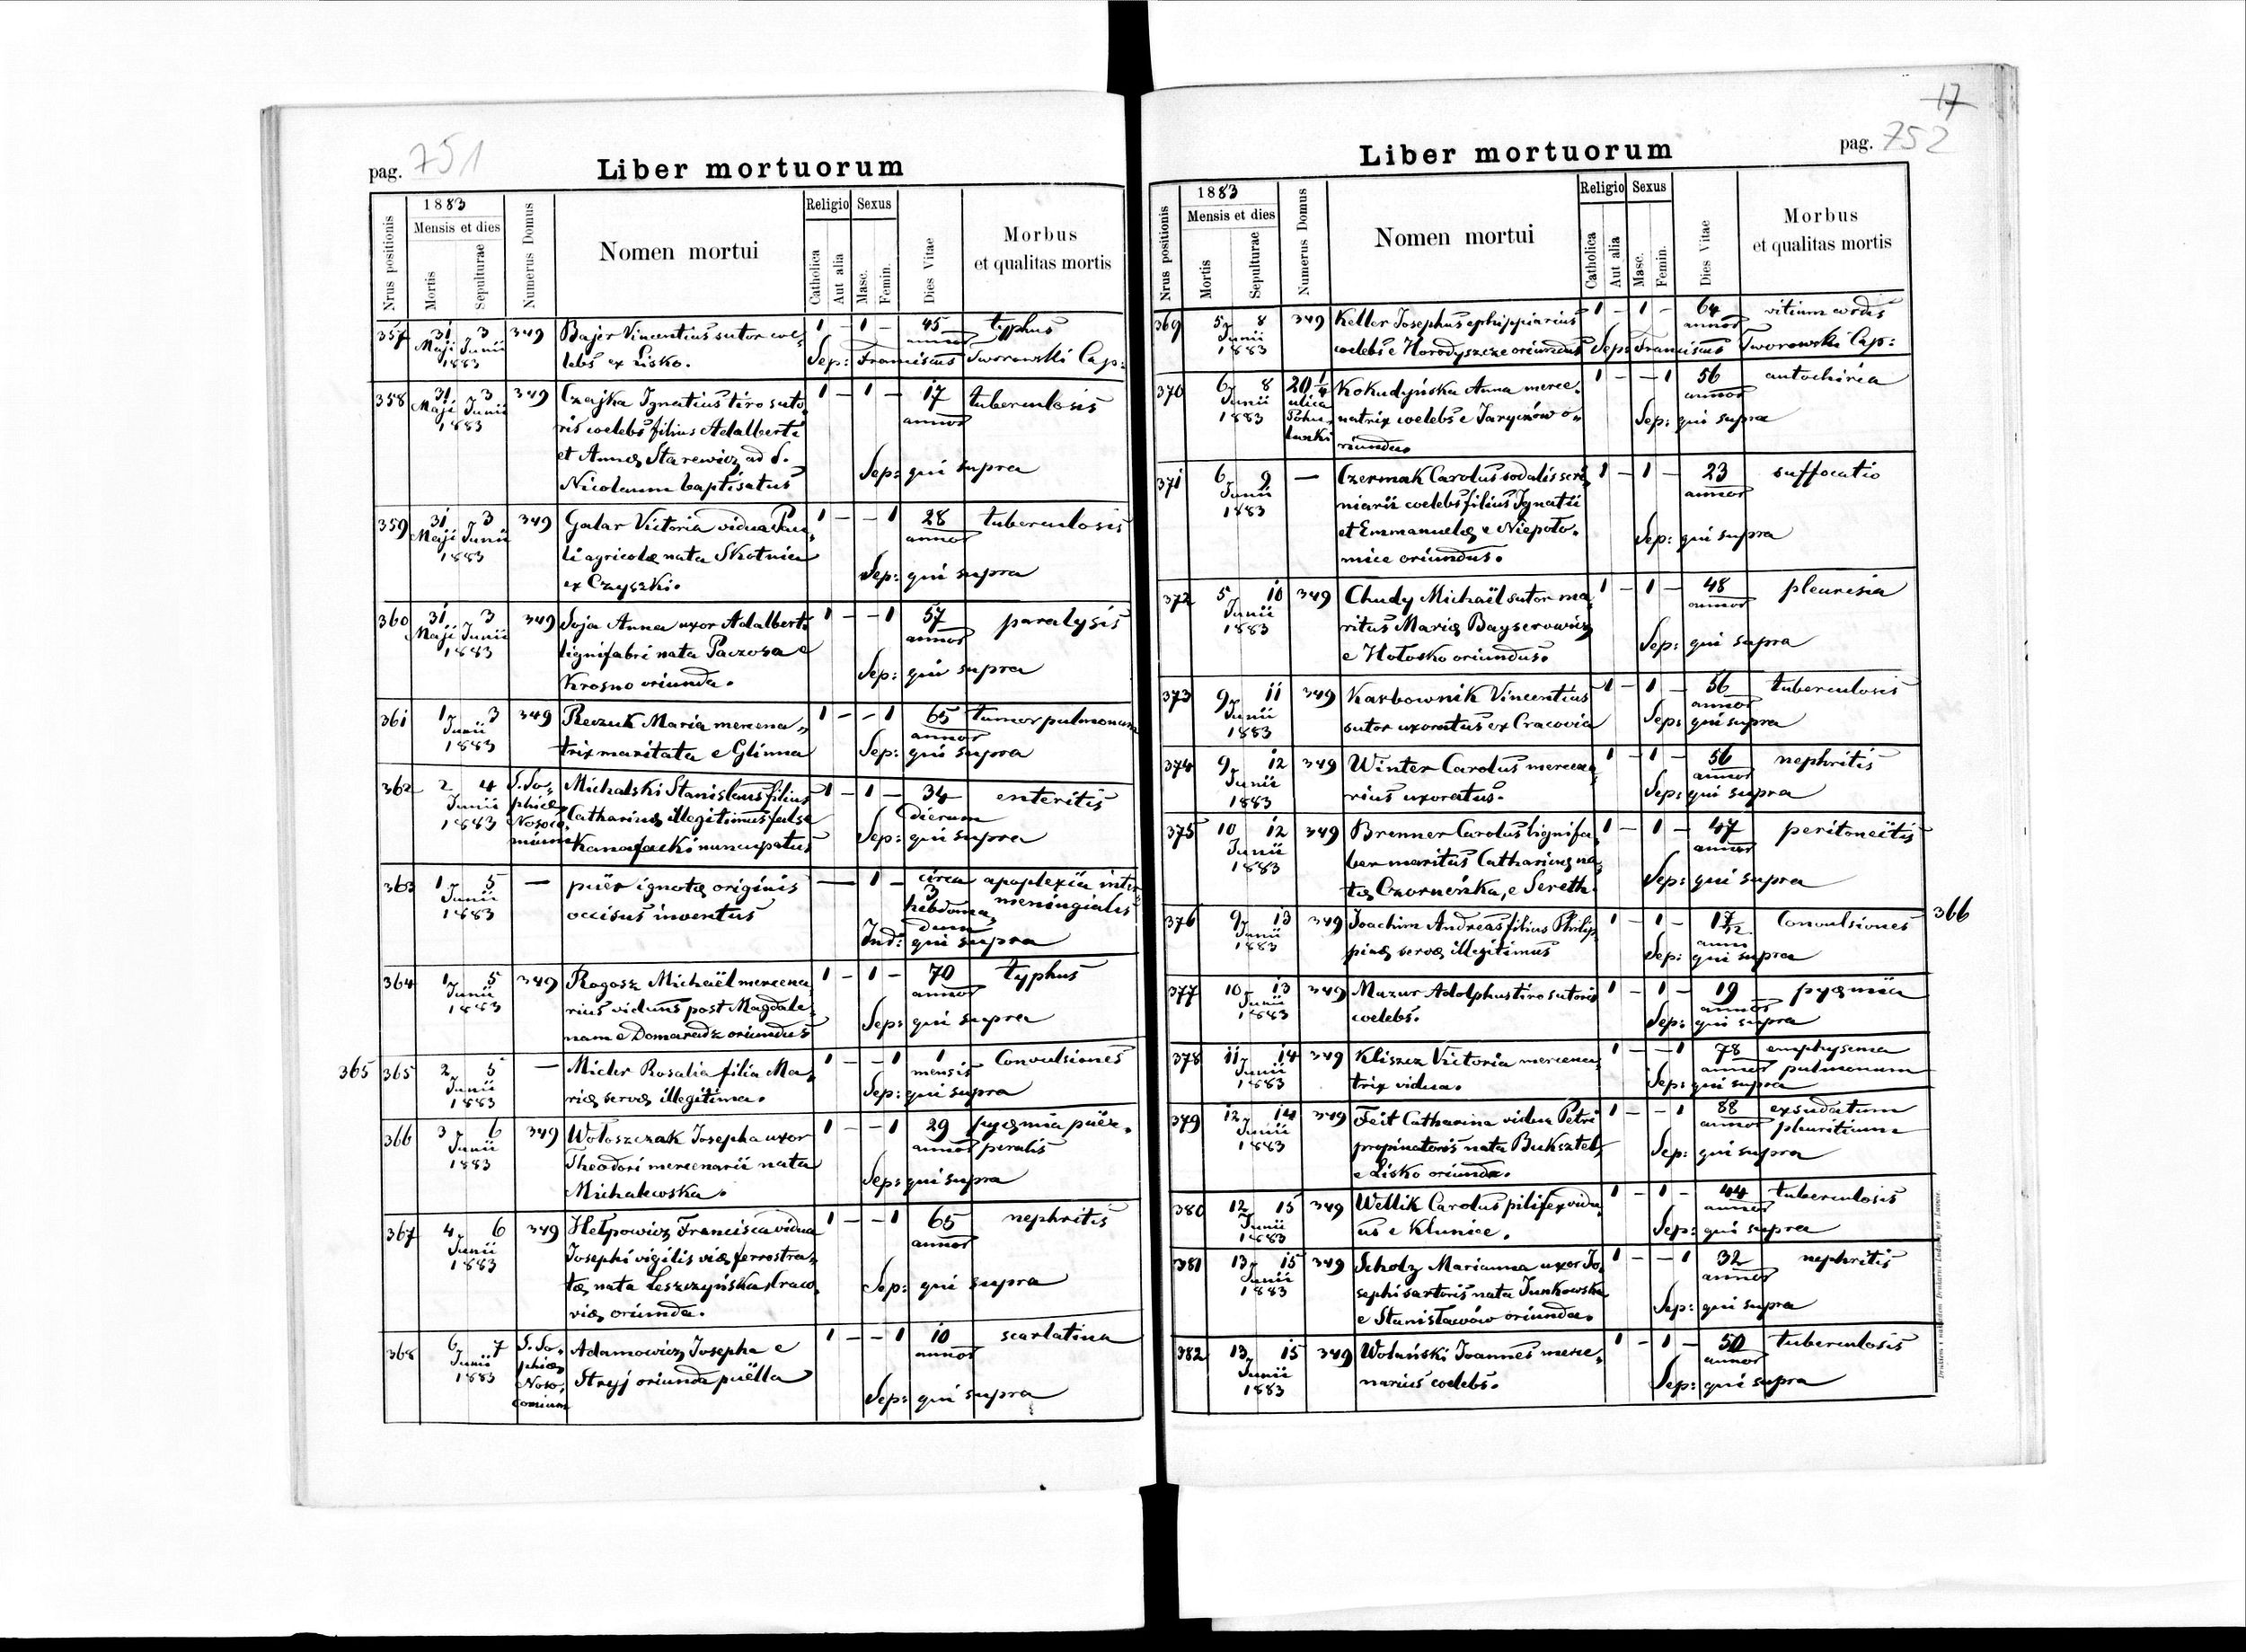 pag. 751
Liber mortuorum
Nrus positionis
1883
Mensis et dies
Mortis
Sepulturae
Numerus Domus
Nomen mortui
Religio
Catholica
Aut alia
Sexus
Masc.
Femin.
Dies Vitae
Morbus
et qualitas mortis
357 31 3 349 Bajer Vincentius sutor coe- 1 - 1 - 45 typhus
Maji Junii annor
1883 lebs ex Lisko. Sep: Franciscus Tworowski Cap:
358 31 3 349 Czajka Ignatius tiro suto- 1 - 1 - 17 tuberculosis
Maji Junii ris coelebs filius Adalberti annor
1883 et Annæ Starewicz ad S. Sep: qui supra
Nicolaum baptisatus
359 31 3 349 Galar Victoria vidua Pau- 1 - - 1 28 tuberculosis
Maji Junii li agricolæ nata Skotnica annor
1883 ex Czyszki. Sep: qui supra
360 31 3 349 Soja Anna uxor Adalberti 1 - - 1 57 paralysis
Maji Junii lignifabri nata Paczosa e annor
1883 Krosno oriunda. Sep: qui supra
361 1 3 349 Reczuk Maria mercena- 1 - - 1 65 tumor pulmonum
Junii annor
1883 trix maritata e Glinna Sep: qui supra
362 2 4 S. So- Michalski Stanislaus filius 1 - 1 - 34 enteritis
Junii phiæ Catharinæ illegitimus false dierum
1883 Nosoco- Sep: qui supra
mium Kanafacki nuncupatus
363 1 5 — püer ignotæ originis — 1 - circa apoplexia inter
Junii 3 meningialis
1883 occisus inventus hebdoma-
dum
Ind: qui supra
364 1 5 349 Rogosz Michaël mercena- 1 - 1 - 70 typhus
Junii rius viduus post Magdale- annor
1883 nam e Domaradz oriundus Sep: qui supra
365 365 2 5 — Micler Rosalia filia Ma- 1 - - 1 1 Convulsiones
Junii mensis
1883 riæ servæ illegitima. Sep: qui supra
366 3 6 349 Wołoszczak Josepha uxor 1 - - 1 29 pyæmia püer-
Junii Theodori mercenarii nata annor peralis
1883 Michalewska. Sep: qui supra
367 4 6 349 Hełpowicz Francisca vidua 1 - - 1 65 nephritis
Junii Josephi vigilis viæ ferrostra- annor
1883 tæ nata Leszczyńska Craco- Sep: qui supra
viæ oriunda.
368 6 7 S. So- Adamowicz Josepha e 1 - - 1 10 scarlatina
Junii phiæ annor
1883 Noso- Stryj oriunda püella
comium Sep: qui supra
17
pag. 752
Liber mortuorum
Nrus positionis
1883
Mensis et dies
Mortis
Sepulturae
Numerus Domus
Nomen mortui
Religio
Catholica
Aut alia
Sexus
Masc.
Femin.
Dies Vitae
Morbus
et qualitas mortis
369 5 8 349 Keller Josephus ephippiarius 1 - 1 - 64 vitium cordis
Junii annor
1883 coelebs e Horodyszcze oriundus Sep: Franciscus Tworowski Cap:
370 6 8 20 1/4 Kokudyńska Anna merce- 1 - - 1 56 autochiria
Junii ulica annor
1883 natrix coelebs e Jaryczów o- Sep: qui supra
riunda.
371 6 9 — Czermak Carolus sodalis scri- 1 - 1 - 23 suffocatio
Junii niarii coelebs filius Ignatii annor
1883 et Emmanuelæ e Niepoło- Sep: qui supra
mice oriundus.
372 5 10 349 Chudy Michaël sutor ma- 1 - 1 - 48 pleuresia
Junii ritus Mariæ Bayserowicz annor
1883 e Hołosko oriundus. Sep: qui supra
373 9 11 349 Karbownik Vincentius 1 - 1 - 56 tuberculosis
Junii annor
1883 sutor uxoratus ex Cracovia Sep: qui supra
374 9 12 349 Winter Carolus mercena- 1 - 1 - 56 nephritis
Junii annor
1883 rius uxoratus. Sep: qui supra
375 10 12 349 Brenner Carolus lignifa- 1 - 1 - 47 peritoneïtis
Junii ber maritus Catharinæ na- annor
1883 tæ Czorneńka, e Sereth. Sep: qui supra
376 9 13 349 Joachim Andreas filius Philip- 1 - 1 - 17/12 Convulsiones 366
Junii anni
1883 pinæ servæ illegitimus Sep: qui supra
377 10 13 349 Mazur Adolphus tiro sutoris 1 - 1 - 19 pyæmia
Junii annor
1883 coelebs. Sep: qui supra
378 11 14 349 Kliszcz Victoria mercena- 1 - - 1 78 emphysema
Junii annor pulmonum
1883 trix vidua. Sep: qui supra
379 12 14 349 Feit Catharina vidua Petri 1 - - 1 88 exsudatum
Junii annor pleuriticum
1883 propinatoris nata Buksztel Sep: qui supra
e Lisko oriunda.
380 12 15 349 Wellik Carolus pilifex vidu- 1 - 1 - 44 tuberculosis
Junii annor
1883 us e Klunice. Sep: qui supra
381 13 15 349 Scholz Marianna uxor Jo- 1 - - 1 32 nephritis
Junii sephi sartoris nata Junkowska annor
1883 e Stanisławów oriunda. Sep: qui supra
382 13 15 349 Wolański Joannes merce- 1 - 1 - 50 tuberculosis
Junii annor
1883 narius coelebs. Sep: qui supra